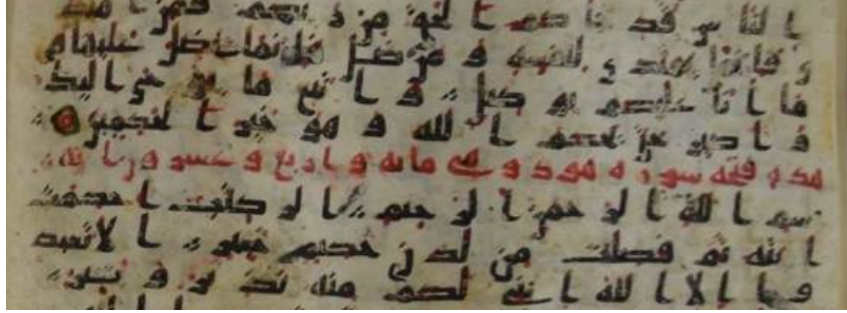 الناس قد جاكم الحق من ربكم فمن اهتد
ى فانما يهتدي لنفسه و من ضل فانما يضل عليها و م
ا انا عليكم بوكيل و اتبع ما يوحى اليك
و اصبر حتى يحكم الله و هو خير الحكمين
هذه فتحه سوره هود و هي مايه و اربع و عشرون ايه
بسم الله الرحمن الرحيم الر كتب احكمت
ايته ثم فصلت من لدن حكيم خبير الا تعبد
وا الا الله انني لكم منه نذير و بشير